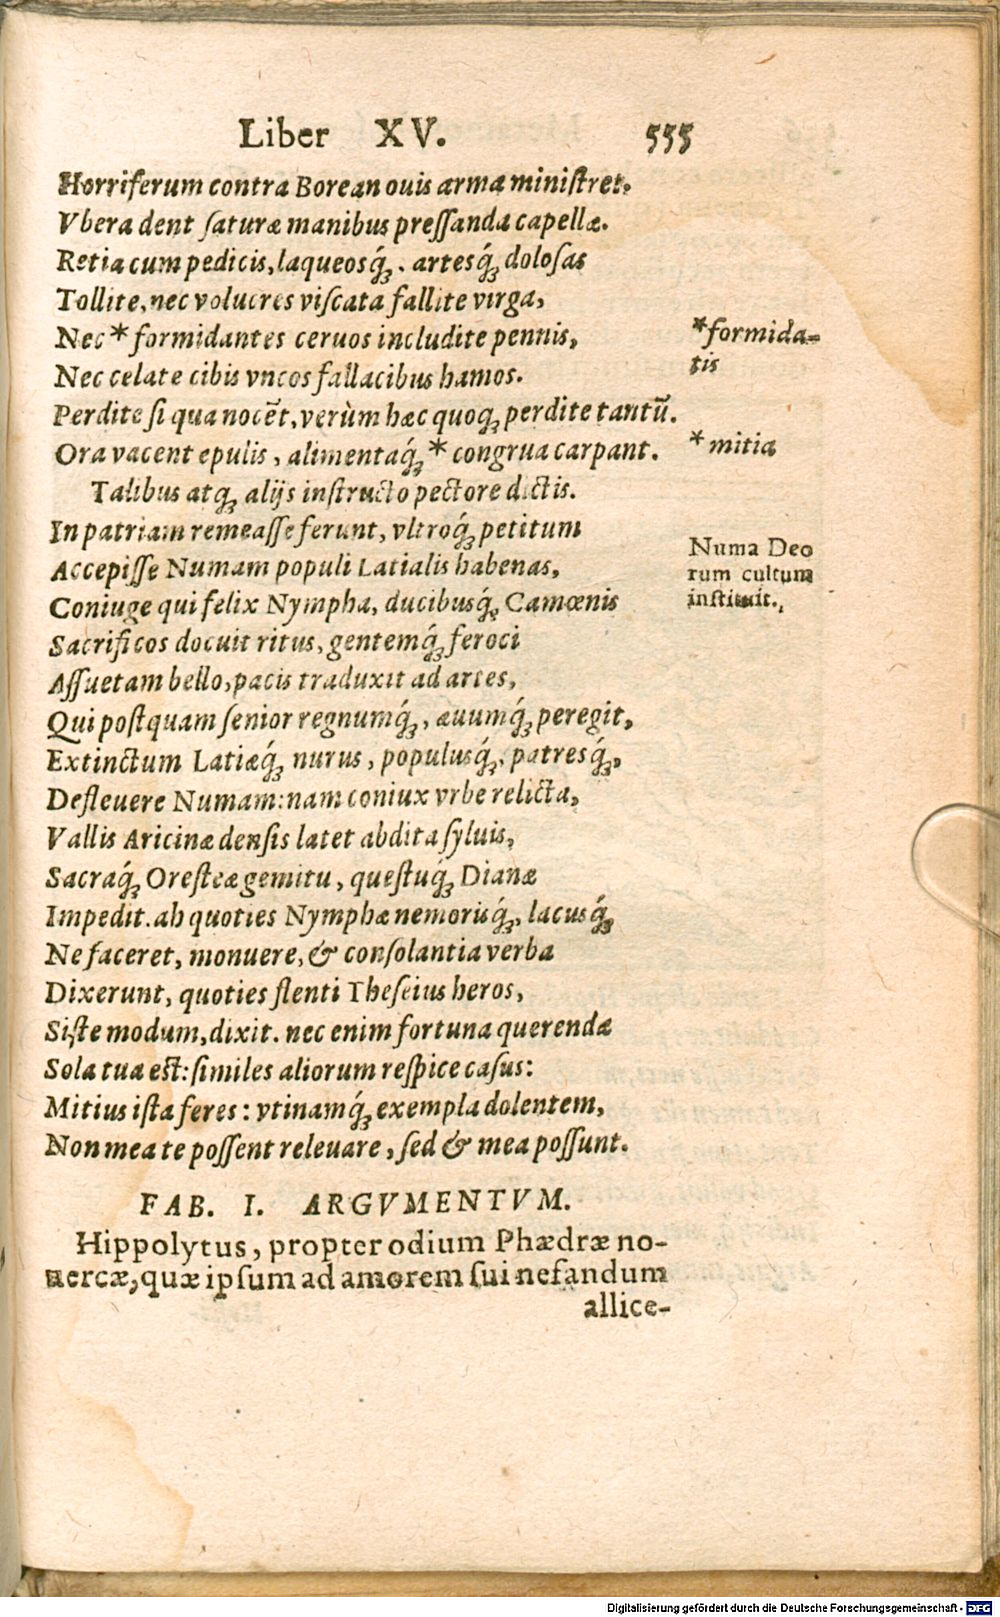 Liber XV. 555
Horriferum contra Borean ouis arma miniſtret,
Vbera dent ſaturæ manibus preſſanda capellæ.
Retia cum pedicis, laqueosq́ꝫ, artesq́ꝫ doloſas
Tollite, nec volucres viſcata fallite virga,
Nec * formidantes ceruos includite pennis, *formida-
tis
Nec celate cibis vncos fallacibus hamos.
Perdite ſi qua nocẽt, verùm hæc quoqꝫ perdite tantũ.
Ora vacent epulis, alimentaq́ꝫ * congrua carpant. * mitia
Talibus atqꝫ alijs inſtructo pectore dictis.
In patriam remeaſſe ferunt, vltroq́ꝫ petitum
Numa Deo
Accepiſſe Numam populi Latialis habenas,
rum cultum
Coniuge qui felix Nympha, ducibusq́ꝫ Camœnis
inſtituit.
Sacrificos docuit ritus, gentemq́ꝫ feroci
Aſſuetam bello, pacis traduxit ad artes,
Qui poſtquam ſenior regnumq́ꝫ, æuumq́ꝫ peregit,
Extinctum Latiæq́ꝫ nurus, populusq́ꝫ, patresq́ꝫ,
Defleuere Numam: nam coniux vrbe relicta,
Vallis Aricinæ denſis latet abdita ſyluis,
Sacraq́ꝫ Oreſteæ gemitu, queſtuq́ꝫ Dianæ
Impedit. ah quoties Nymphæ nemorisq́ꝫ, lacusq́ꝫ
Ne faceret, monuere, & conſolantia verba
Dixerunt, quoties flenti Theſeius heros,
Siſte modum, dixit. nec enim fortuna querendæ
Sola tua eſt: ſimiles aliorum reſpice caſus:
Mitius iſta feres: vtinamq́ꝫ exempla dolentem,
Non mea te poſſent releuare, ſed & mea poſſunt.
FAB. I. ARGVMENTVM.
Hippolytus, propter odium Phædræ no-
uercæ, quæ ipſum ad amorem ſui nefandum
allice-
Digitalisierung gefördert durch die Deutsche Forschungsgemeinschaft - DFG